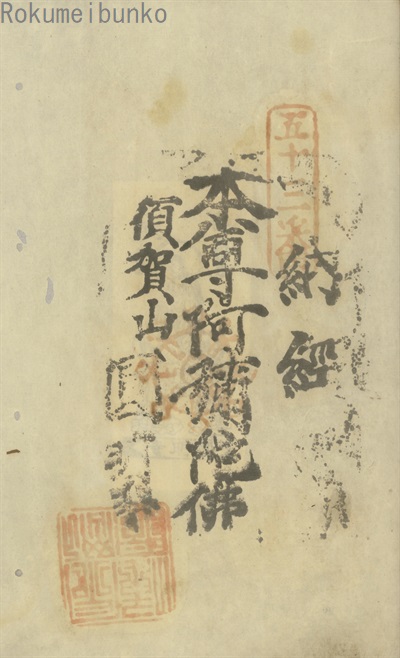 Rokumeibunko
五十
納經
本尊阿彌陀佛
須賀山圓明寺